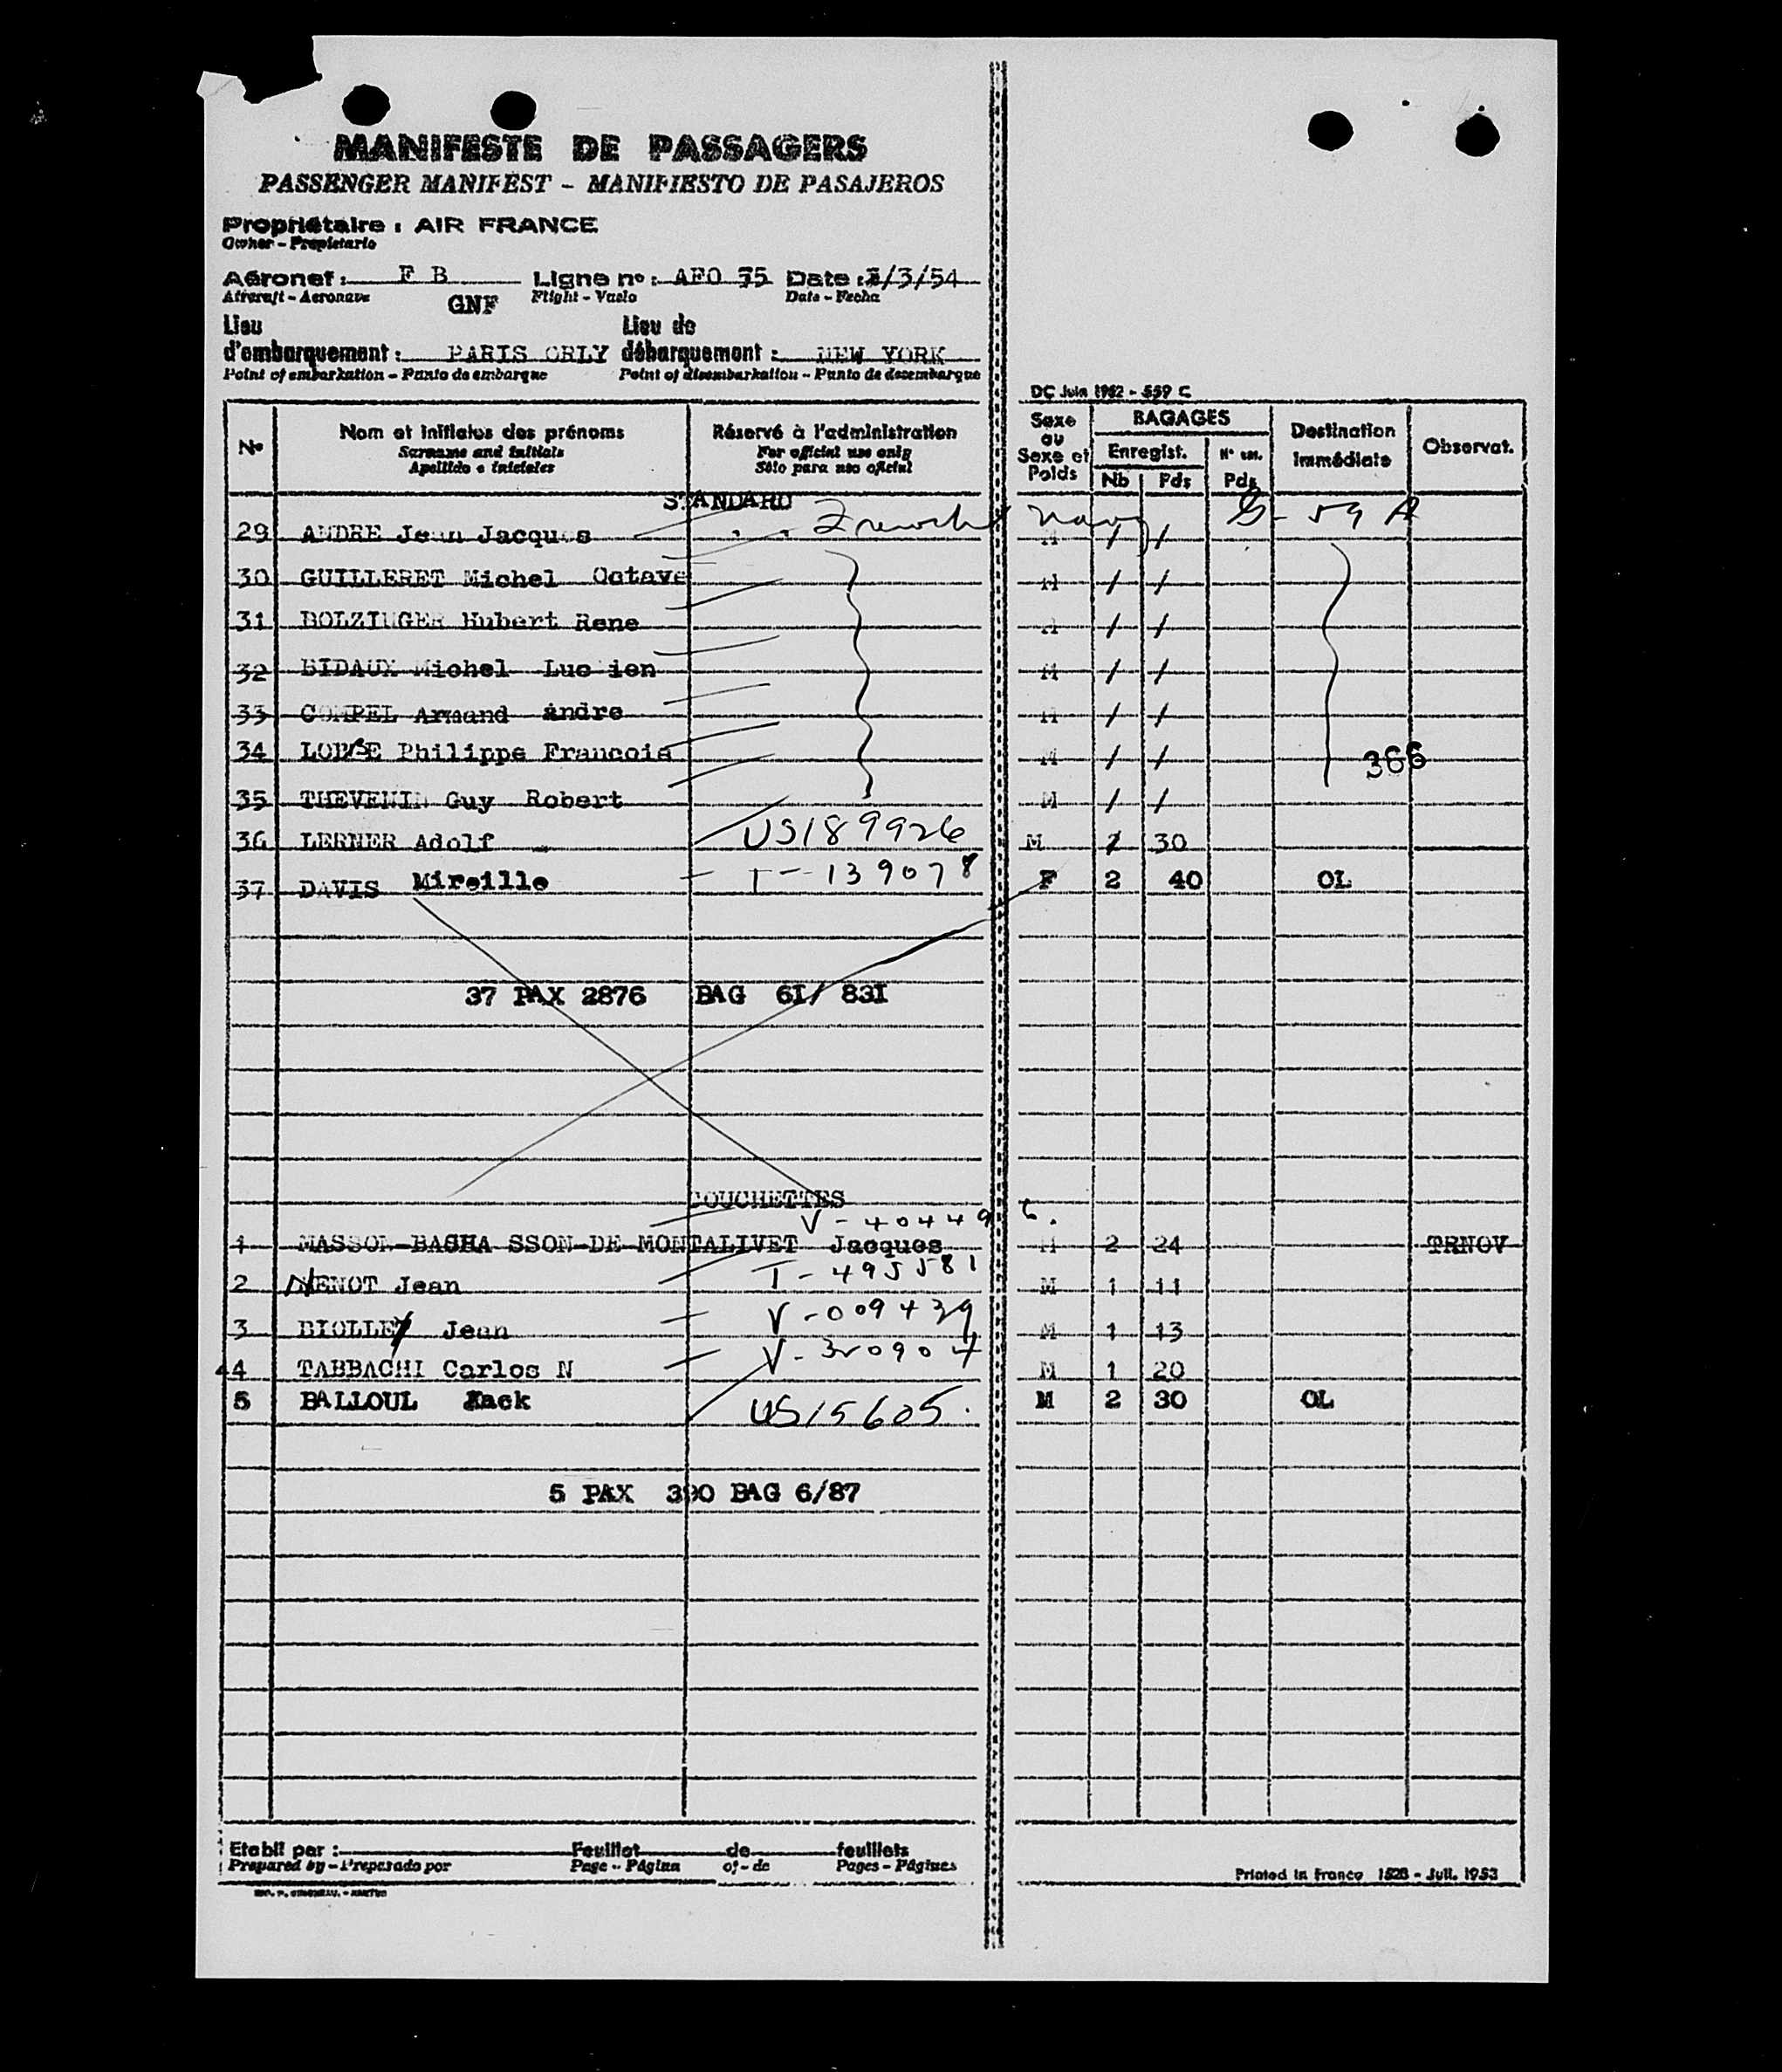 MANIFESTE DE PASSAGERS
PASSENGER MANIFEST - MANIFIESTO DE PASAJEROS
Propriétaire : AIR FRANCE
Owner - Propietario
Aéronef : F B Ligne no : AFO 75 Date : /3/54
Aircraft - Aeronave GNF Flight - Vuelo Date - Fecha
Lieu d'embarquement : PARIS ORLY Lieu de débarquement : NEW YORK
Point of embarkation - Punto de embarque Point of disembarkation - Punto de desembarque
DC Juin 1952 - 559 C
No Nom et initiales des prénoms Réservé à l'administration Sexe ou Sexe et Poids BAGAGES Destination immédiate Observat.
Surname and initials For official use only Enregist. N° en.
Apellido e iniciales Sólo para uso oficial Nb Pds Pds
STANDARD
29 ANDRE Jean Jacques French Navy B - 59 A M / /
30 GUILLERET Michel Octave M / /
31 BOLZINGER Hubert Rene M / /
32 BIDAUX Michel Lucien M / /
33 COMPEL Armand Andre M / /
34 Philippe Francois M / / 366
35 THEVENIN Guy Robert M / /
36 LERNER Adolf US189926 M 2 30
37 DAVIS Mireille T - 139078 F 2 40 OL
37 PAX 2876 BAG 61/ 831
COUCHETTES
V - 404496.
1 MASSON-BACHA SSON-DE MONTALIVET Jacques M 2 24 TRNOV
2 NENOT Jean T - 495581 M 1 11
3 BIOLLEY Jean V - 009439 M 1 13
4 TABBACHI Carlos N V - 320904 M 1 20
5 BALLOUL Zack US15605. M 2 30 OL
5 PAX 390 BAG 6/87
Etabli par : Feuillet de feuillets
Prepared by - Preparado por Page - Página of - de Pages - Páginas
Printed in France 1528 - Juil. 1953